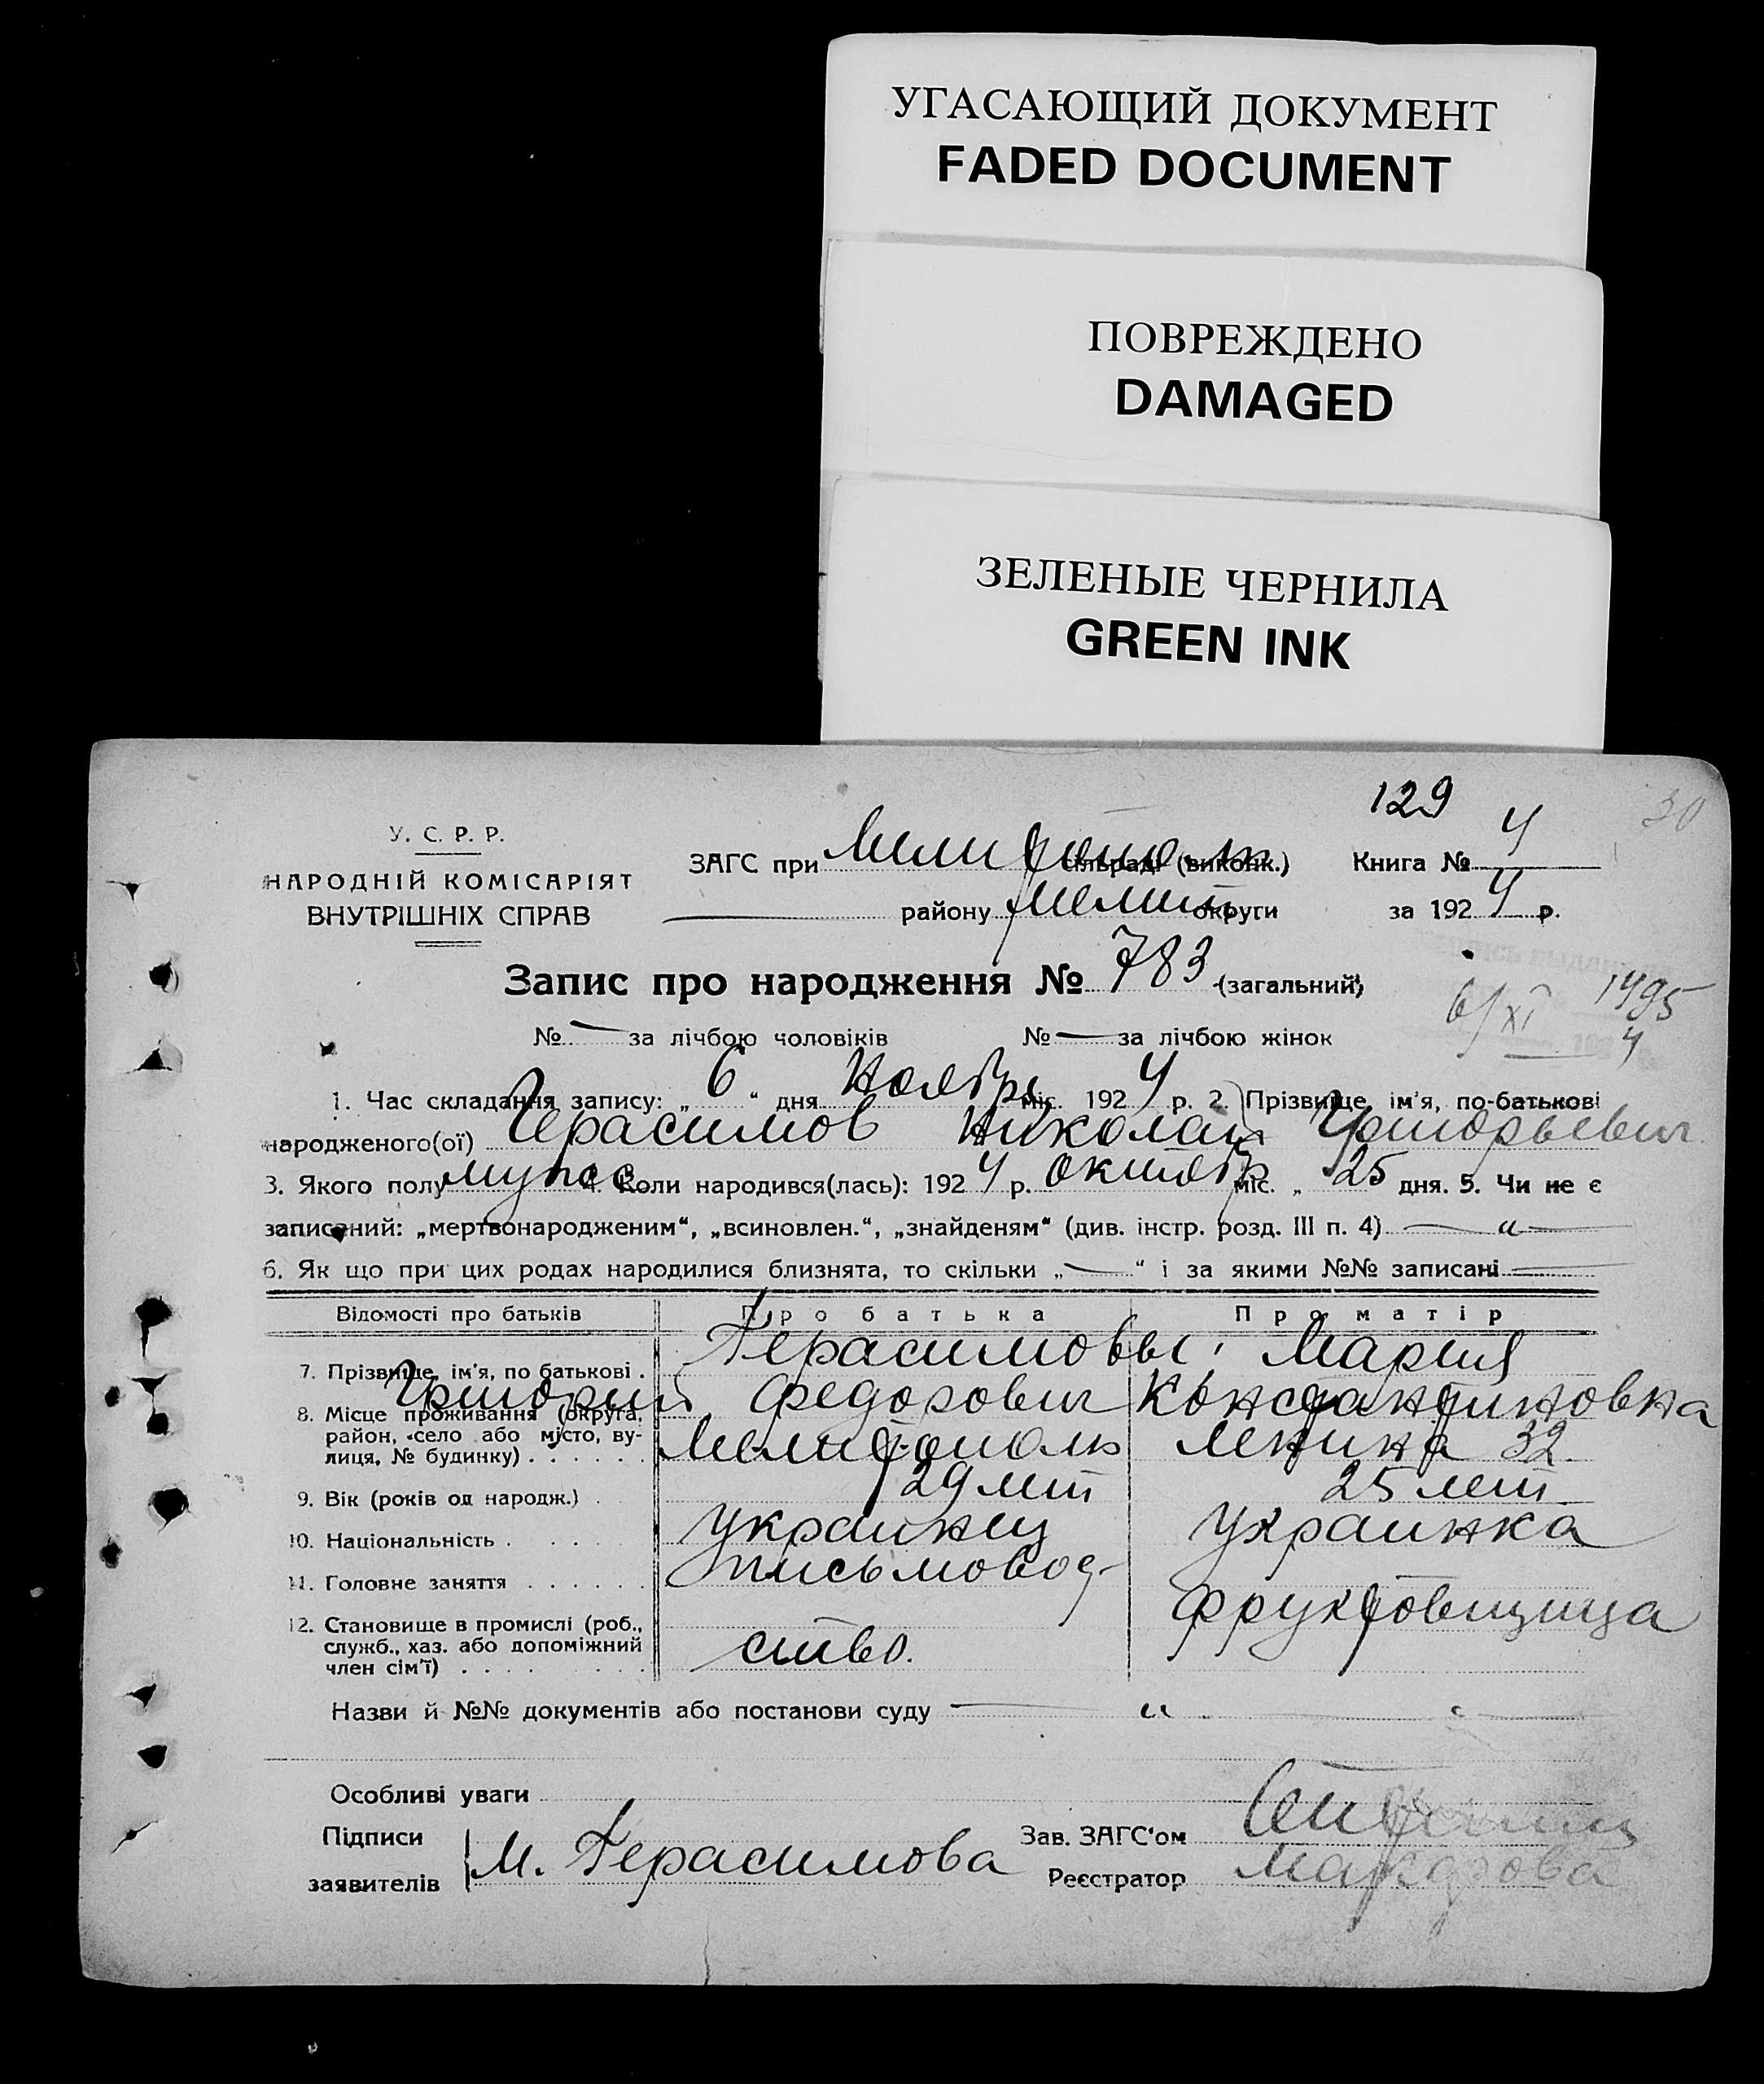 УГАСАЮЩИЙ ДОКУМЕНТ
FADED DOCUMENT
ПОВРЕЖДЕНО
DAMAGED
ЗЕЛЕНЫЕ ЧЕРНИЛА
GREEN INK
129
30
У. С. Р. Р.
НАРОДНІЙ КОМІСАРІЯТ
ВНУТРІШНІХ СПРАВ
ЗАГС при Мелитополь сільраді (виконк.) Книга № 4
району Мелит. округи за 1924 р.
Запис про народження № 783 (загальний)
6/XI 1495
4
№ — за лічбою чоловіків № — за лічбою жінок
1. Час складання запису: „ 6 “ дня Ноября міс. 1924 р. 2. Прізвище, ім'я, по-батькові
народженого(ої) Герасимов Николай Григорьевич
3. Якого полу муж. 4. Коли народився(лась): 1924 р. октябр міс. „ 25 дня. 5. Чи не є
записаний: „мертвонародженим“, „всиновлен.“, „знайденям“ (див. інстр. розд. III п. 4) — „ —
6. Як що при цих родах народилися близнята, то скільки „ — “ і за якими №№ записані —
Відомості про батьків Про батька Про матір
7. Прізвище, ім'я, по батькові . Герасимовы: Мария
Григорий Федорович Константиновна
8. Місце проживання (округа, район, село або місто, вулиця, № будинку) . . . . . . Мелитополь Ленина 32
9. Вік (років од народж.) . 29 лет 25 лет
10. Національність . . . . . украинец украинка
11. Головне заняття . . . . . . письмовод-
фруктовщица
12. Становище в промислі (роб., служб., хаз. або допоміжний член сім'ї) . . . . . . ство.
Назви й №№ документів або постанови суду — „ —
Особливі уваги
Підписи
заявителів М. Герасимова
Зав. ЗАГС'ом
Реєстратор